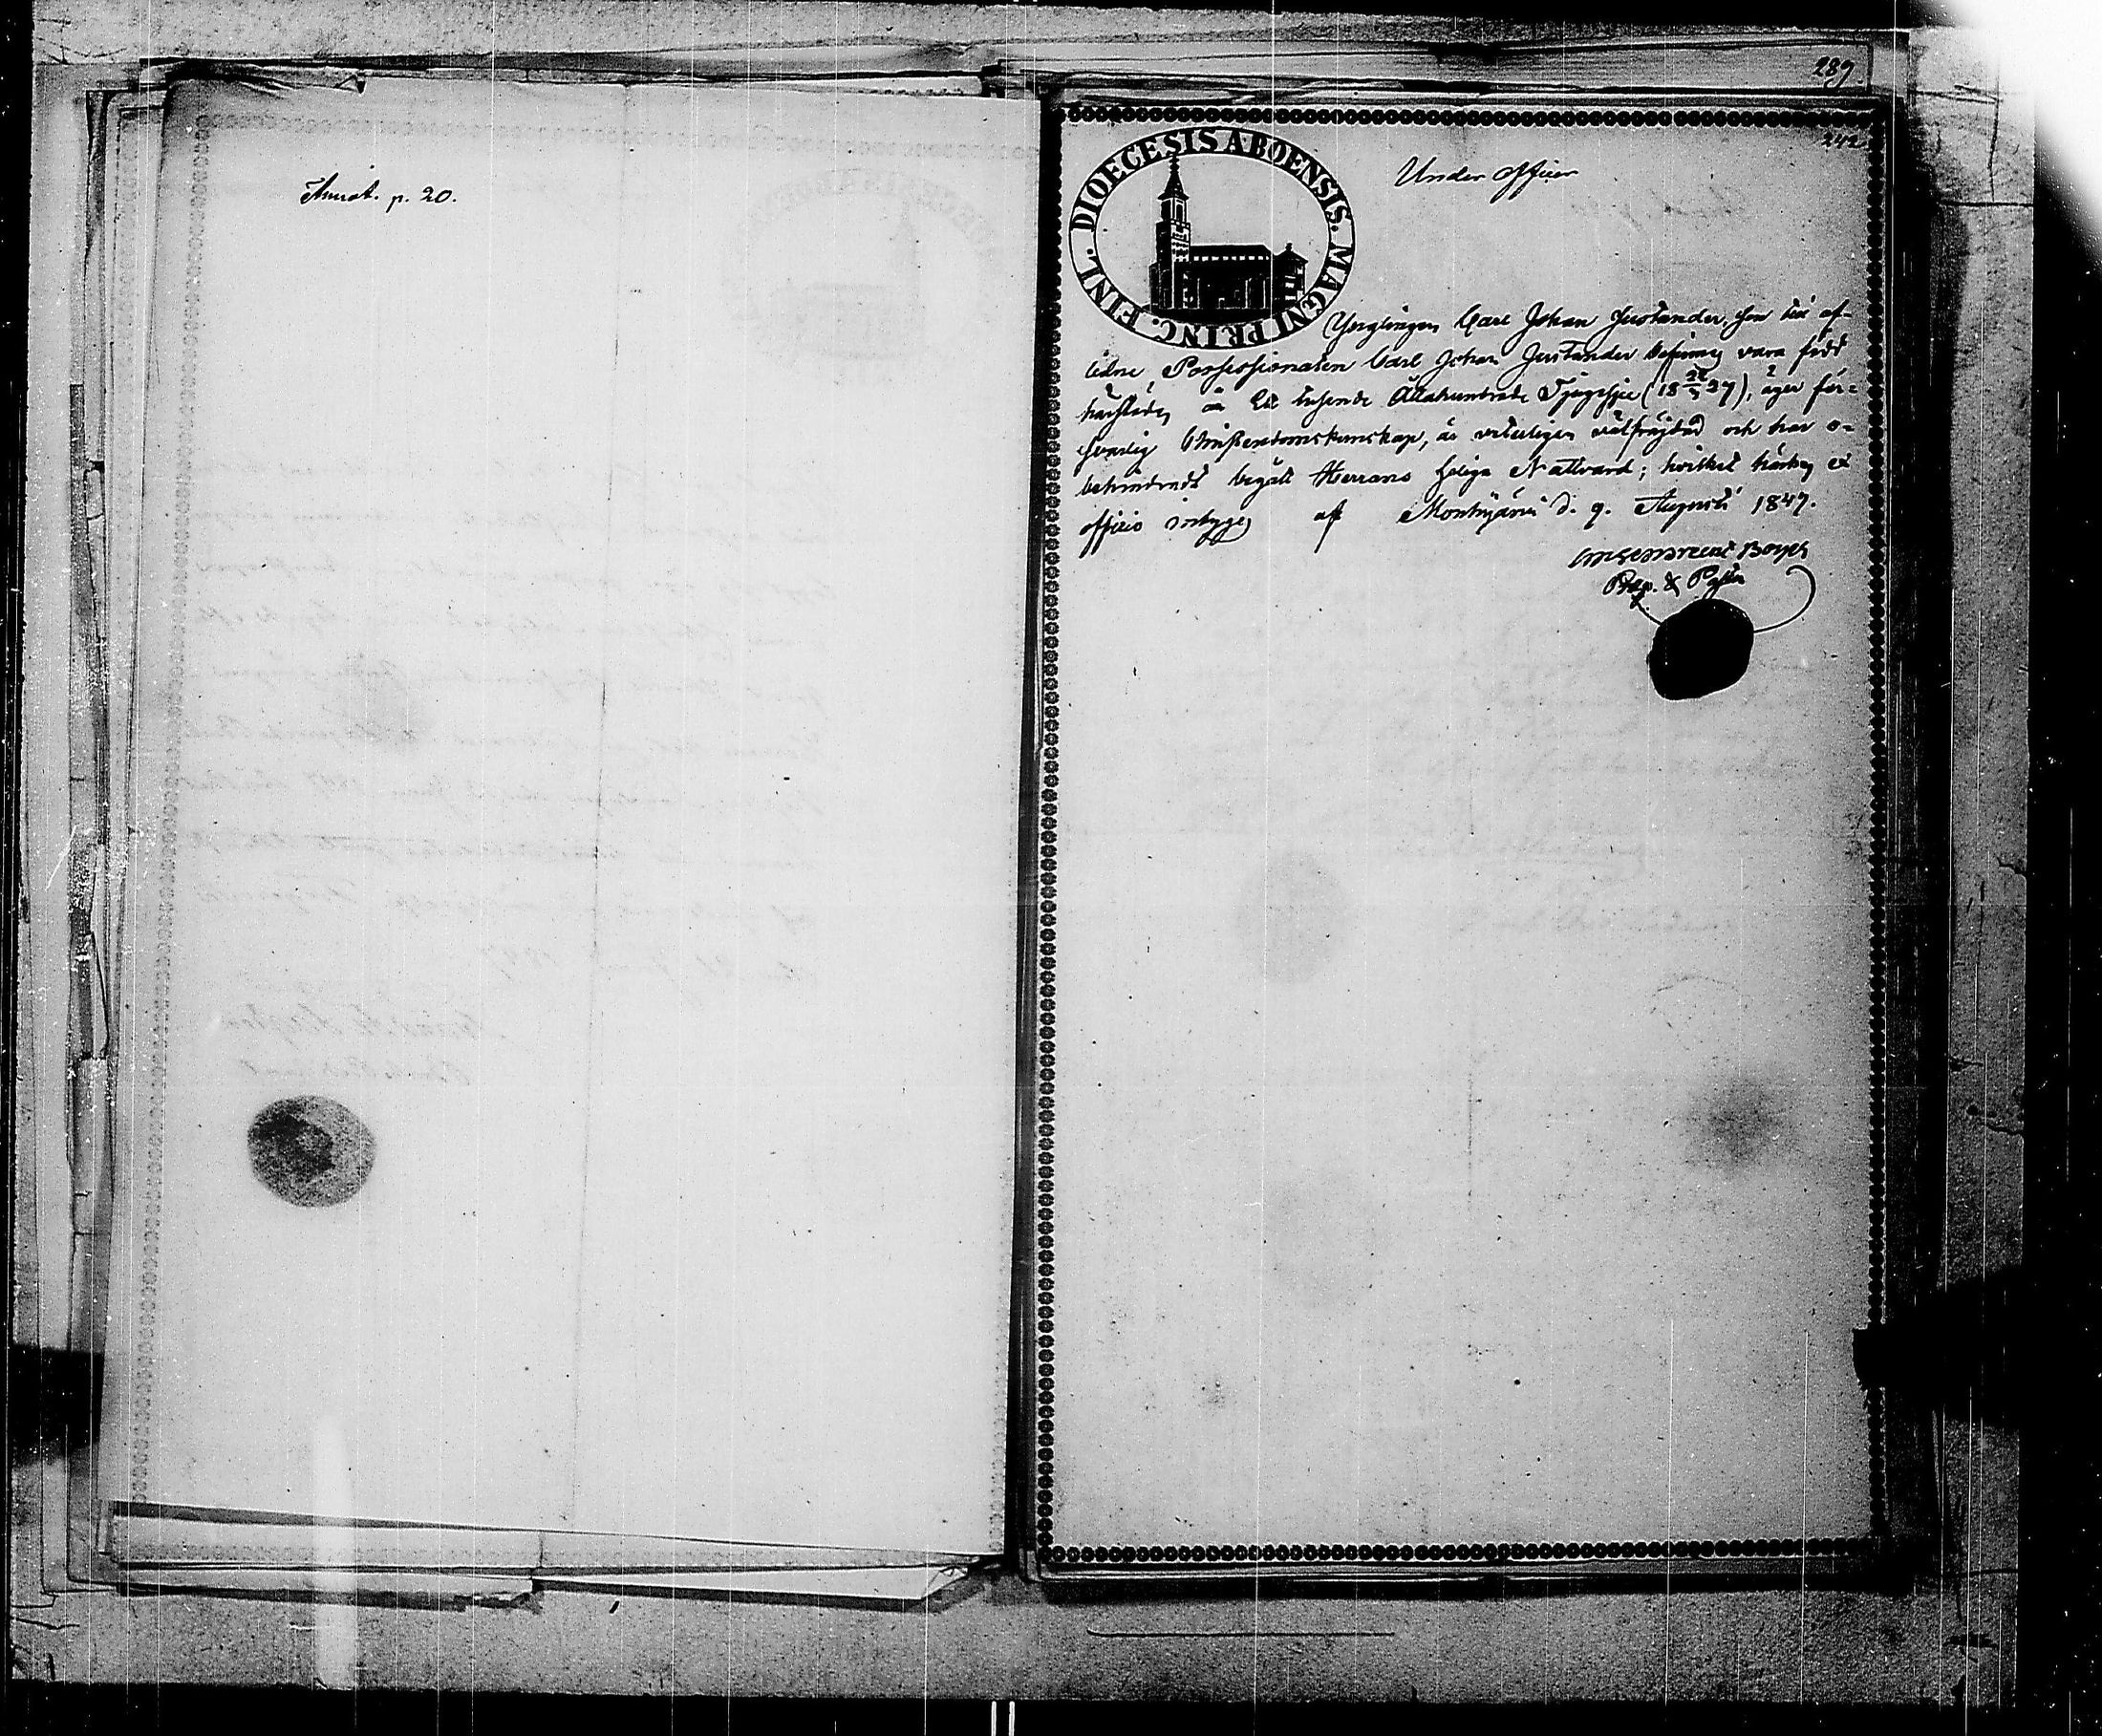 p. 20.
289.
242
DIOECESIS ABOENSIS. MAGNI PRINC. FINL.
Under officer
Ynglingen Carl Johan Justander, son till af-
lidne Possessionaten Carl Johan Justander befinnes vara född
härstädes år Ett tusende Åttahundrade Tjugesju (18 27), äger för-
svarlig Christendomskunskap, är vitterligen välfräjdad och har o-
behindradt begått Herrans Heliga Nattvard; hvilket härhos ex
officio intygas af Mouhijärvi d. 9. Augusti 1847.
Prep. &